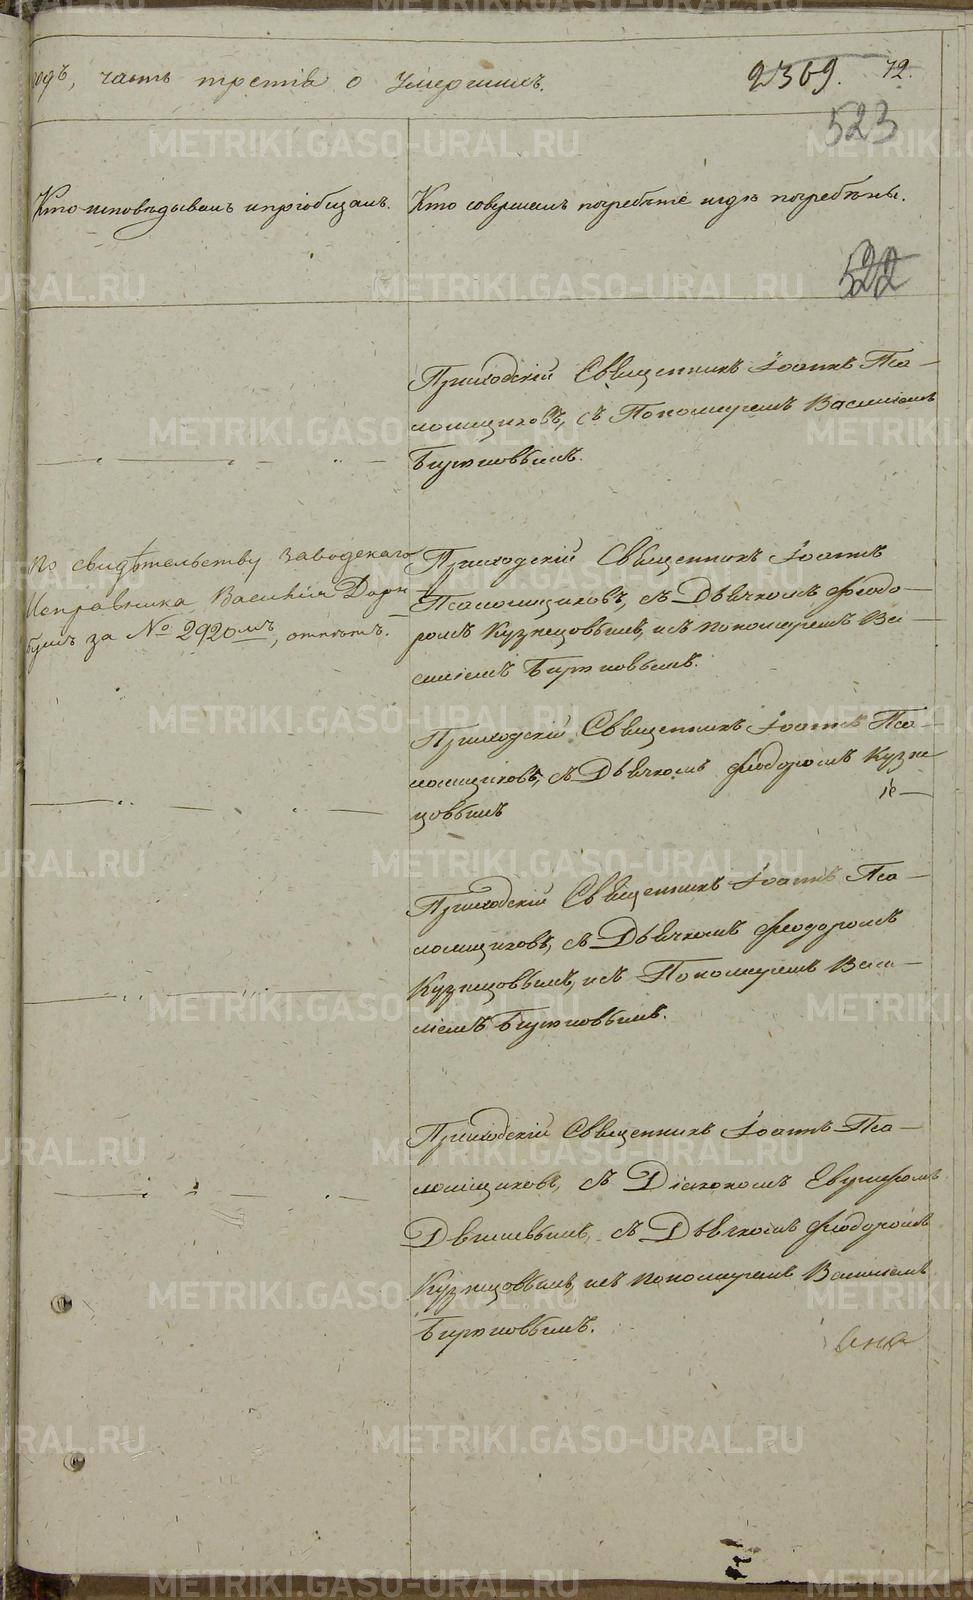 одъ, часть третія о умершихъ.
2369. 72.
523
Кто исповѣдывалъ и пріобщалъ.
Кто совершалъ погребѣніе и гдѣ погребѣны.
522
Приходскій Священникъ Іоаннъ Пса-
ломщиковъ, съ Пономаремъ Василіемъ
Бирюковымъ.
По свидѣтельству Заводскаго
Исправника Василія
за № 2920мъ, отпѣтъ.
Приходскій Священникъ Іоаннъ
Псаломщиковъ, съ Дьячкомъ Феодо-
ромъ Кузнецовымъ, и съ пономаремъ Ва-
силіемъ Бирюковымъ.
Приходскій Священникъ Іоаннъ Пса-
ломщиковъ, съ Дьячкомъ Феодоромъ Кузне-
цовымъ
Приходскій Священникъ Іоаннъ Пса-
ломщиковъ, съ Дьячкомъ Феодоромъ
Кузнецовымъ, и съ Пономаремъ Васи-
ліемъ Бирюковымъ.
Приходскій Священникъ Іоаннъ Пса-
ломщиковъ, съ Діакономъ
съ Дьячкомъ Феодоромъ
Кузнецовымъ, и съ пономаремъ Василіемъ
Бирюковымъ.
METRIKI.GASO-URAL.RU